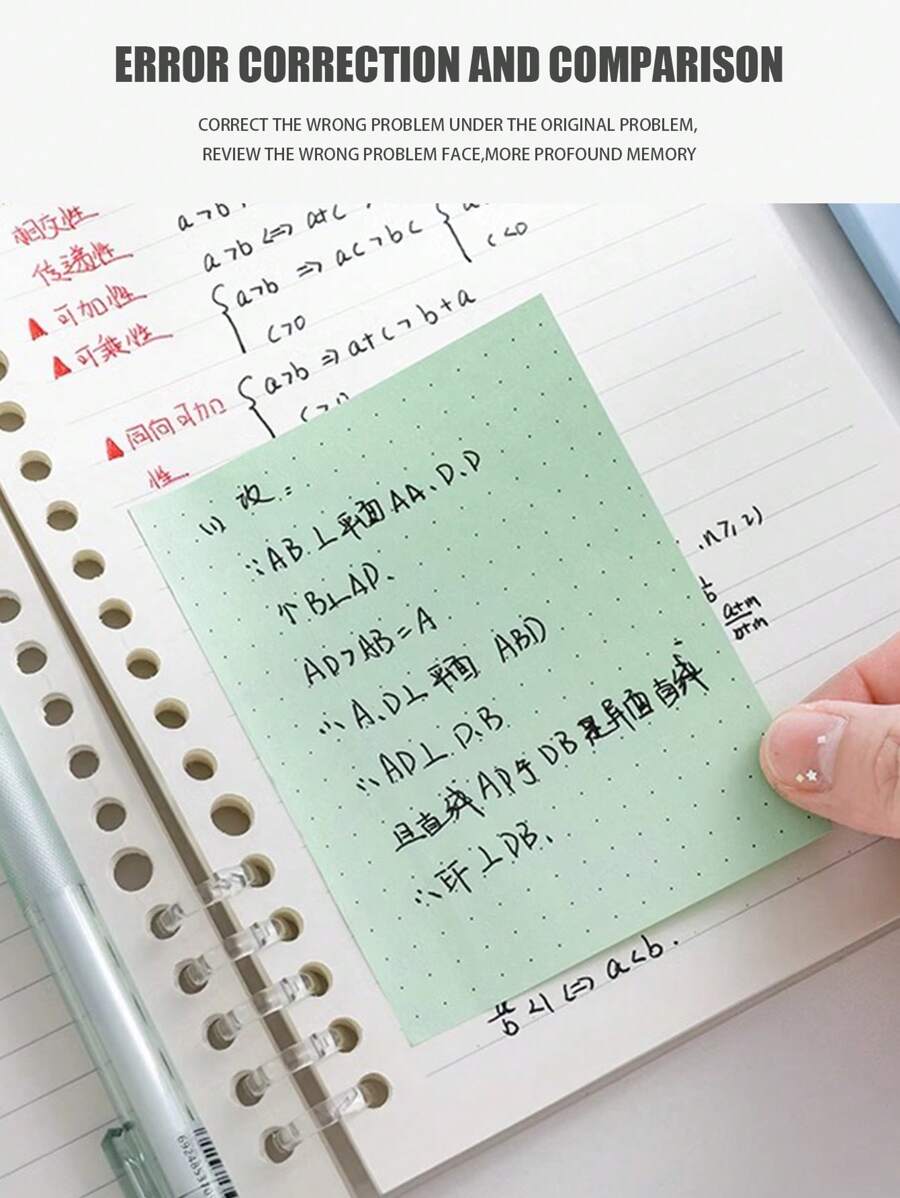 ERROR CORRECTION AND COMPARISON
CORRECT THE WRONG PROBLEM UNDER THE ORIGINAL PROBLEM,
REVIEW THE WRONG PROBLEM FACE,MORE PROFOUND MEMORY
相交性
a>b
传递性
a>b <=> a+c
▲可加性
{a>b => ac>bc {
c>0
c<0
▲可乘性
{a>b => a+c>b+a
▲同向可加
性
(1) 改:
∵AB⊥平面AA、D、D
B⊥AD、
AD>AB=A
∴A、D⊥平面 ABD
∴AD⊥D、B
且直线AD与DB是异面直线
⊥DB、
a+m
b+m
a/b <1 <=> a<b.
6924853701